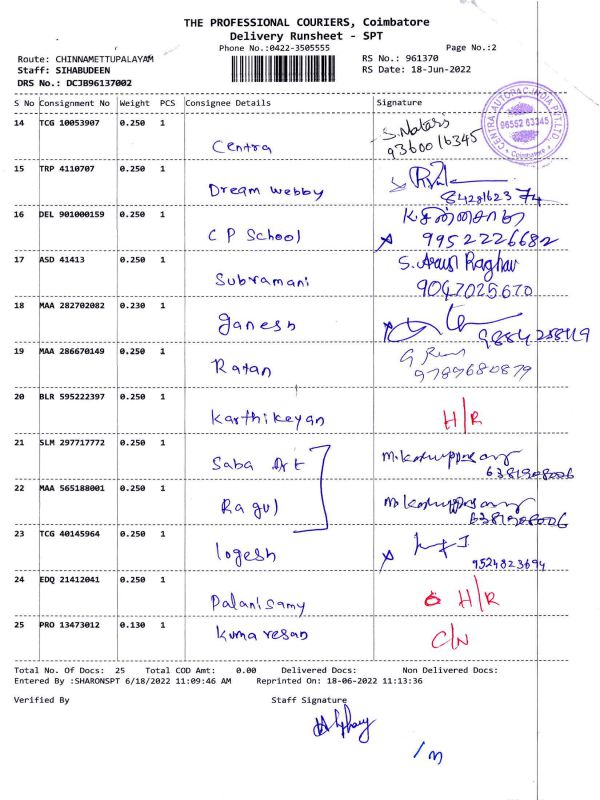 THE PROFESSIONAL COURIERS, Coimbatore
Delivery Runsheet - SPT
Phone No.:0422-3505555
Page No.:2
Route: CHINNAMETTUPALAYAM
RS No.: 961370
Staff: SIHABUDEEN
RS Date: 18-Jun-2022
DRS No.: DCJB96137002
S No Consignment No Weight PCS Consignee Details Signature
CENTRA AUTOPAC INDIA PVT LTD
96552 63345
Coimbatore
14 TCG 10053907 0.250 1
Centra
9360016345
15 TRP 4110707 0.250 1
Dream webby
8428162374
16 DEL 901000159 0.250 1
C P School
9952226682
17 ASD 41413 0.250 1
Subramani
S. Arun Raghav
9047025670
18 MAA 282702082 0.230 1
Ganesh
19 MAA 286670149 0.250 1
Ratan
9789680879
20 BLR 595222397 0.250 1
Karthikeyan H/R
21 SLM 297717772 0.250 1
Saba Art
6381908006
22 MAA 565188001 0.250 1
Ragul
6381908006
23 TCG 40145964 0.250 1
logesh
9524823694
24 EDQ 21412041 0.250 1
Palanisamy H/R
25 PRO 13473012 0.130 1
Kumaresan
Total No. Of Docs: 25 Total COD Amt: 0.00 Delivered Docs: Non Delivered Docs:
Entered By :SHARONSPT 6/18/2022 11:09:46 AM Reprinted On: 18-06-2022 11:13:36
Verified By Staff Signature